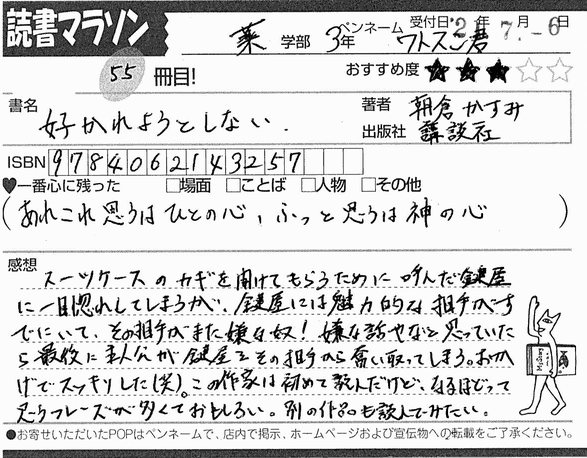 読書マラソン
薬 学部 3年 ペンネーム ワトスン君 受付日 '21年 7.月-6日
55 冊目! おすすめ度 ★★★☆☆
書名 好かれようとしない.
著者 朝倉かすみ
出版社 講談社
ISBN 9784062143257
♥一番心に残った □場面 □ことば □人物 □その他
(あれこれ思うはひとの心、ふっと思うは神の心)
感想
スーツケースのカギを開けてもらうために呼んだ鍵屋
に一目惚れしてしまうが、鍵屋には魅力的な相手がす
でにいて、その相手がまた嫌な奴!嫌な話やなと思っていた
ら最後に主人公が鍵屋をその相手から奪い取ってしまう。おかげ
げでスッキリした(笑)。この作家は初めて読んだけど、なるほどって
思うフレーズが多くておもしろい。別の作品も読んでみたい。
●お寄せいただいたPOPはペンネームで、店内で掲示、ホームページおよび宣伝物への転載をご了承ください。